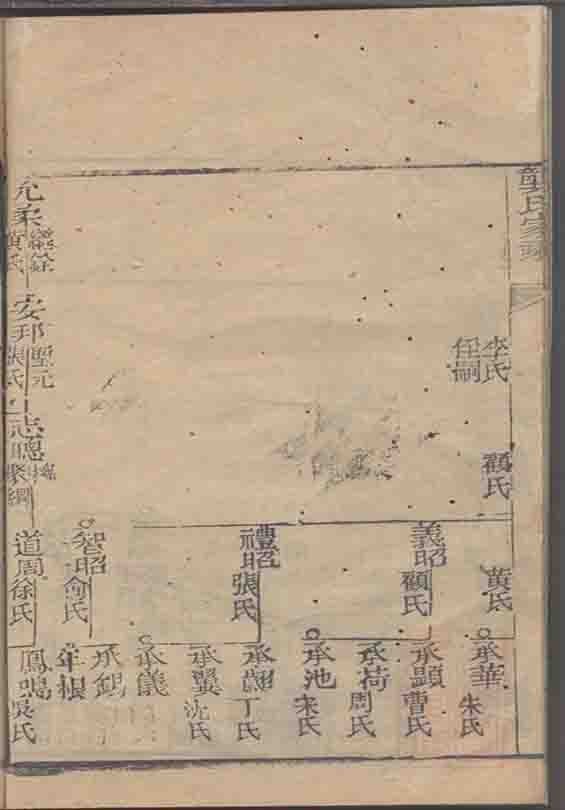 龔氏家譜
李氏
侄嗣
顧氏
黃氏
承華 朱氏
義昭 顧氏
承顯 曹氏
承荷 周氏
承池 宋氏
禮昭 張氏
承翹 丁氏
承翼 沈氏
承儀
智昭 俞氏
承釲
年根
允柔 黃氏
安邦 聖元 張氏
志聰
道周 徐氏
鳳鳴 吳氏